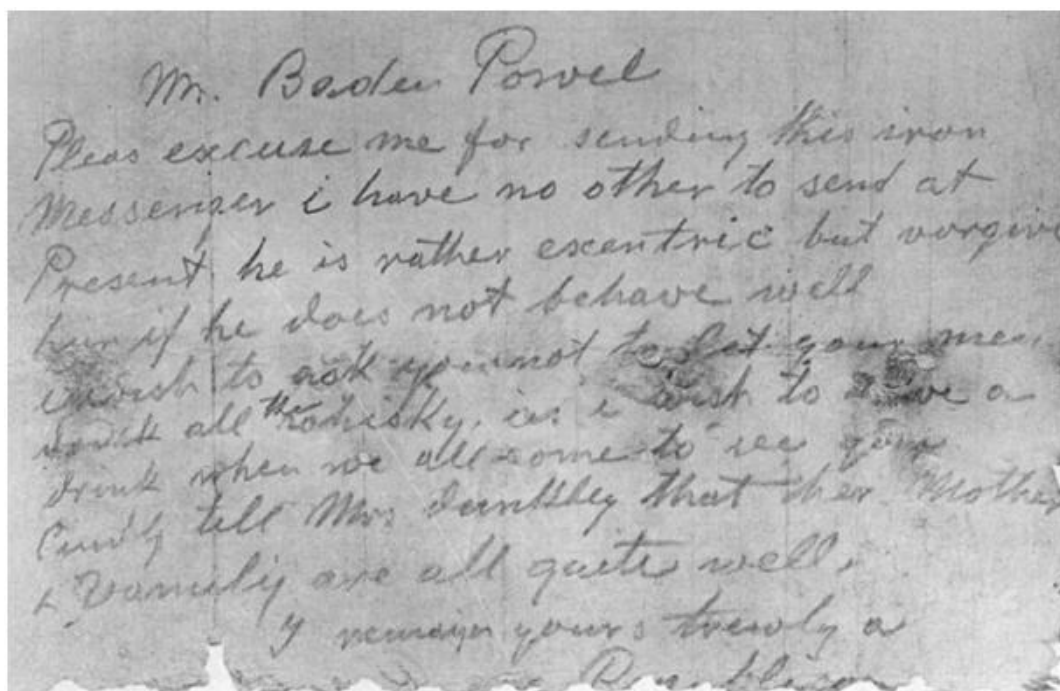 Mr. Baden Powel
Pleas excuse me for sending this iron
Messenger i have no other to send at
Present he is rather excentric but vorgive
him if he does not behave well
i wish to ask you not to let your men
drink all the whisky, as i wish to have a
drink when we all come to see you
cindly tell Mrs dunkley that her Mother
& Vamily are all quite well.
I remayn yours trewly a
Republican